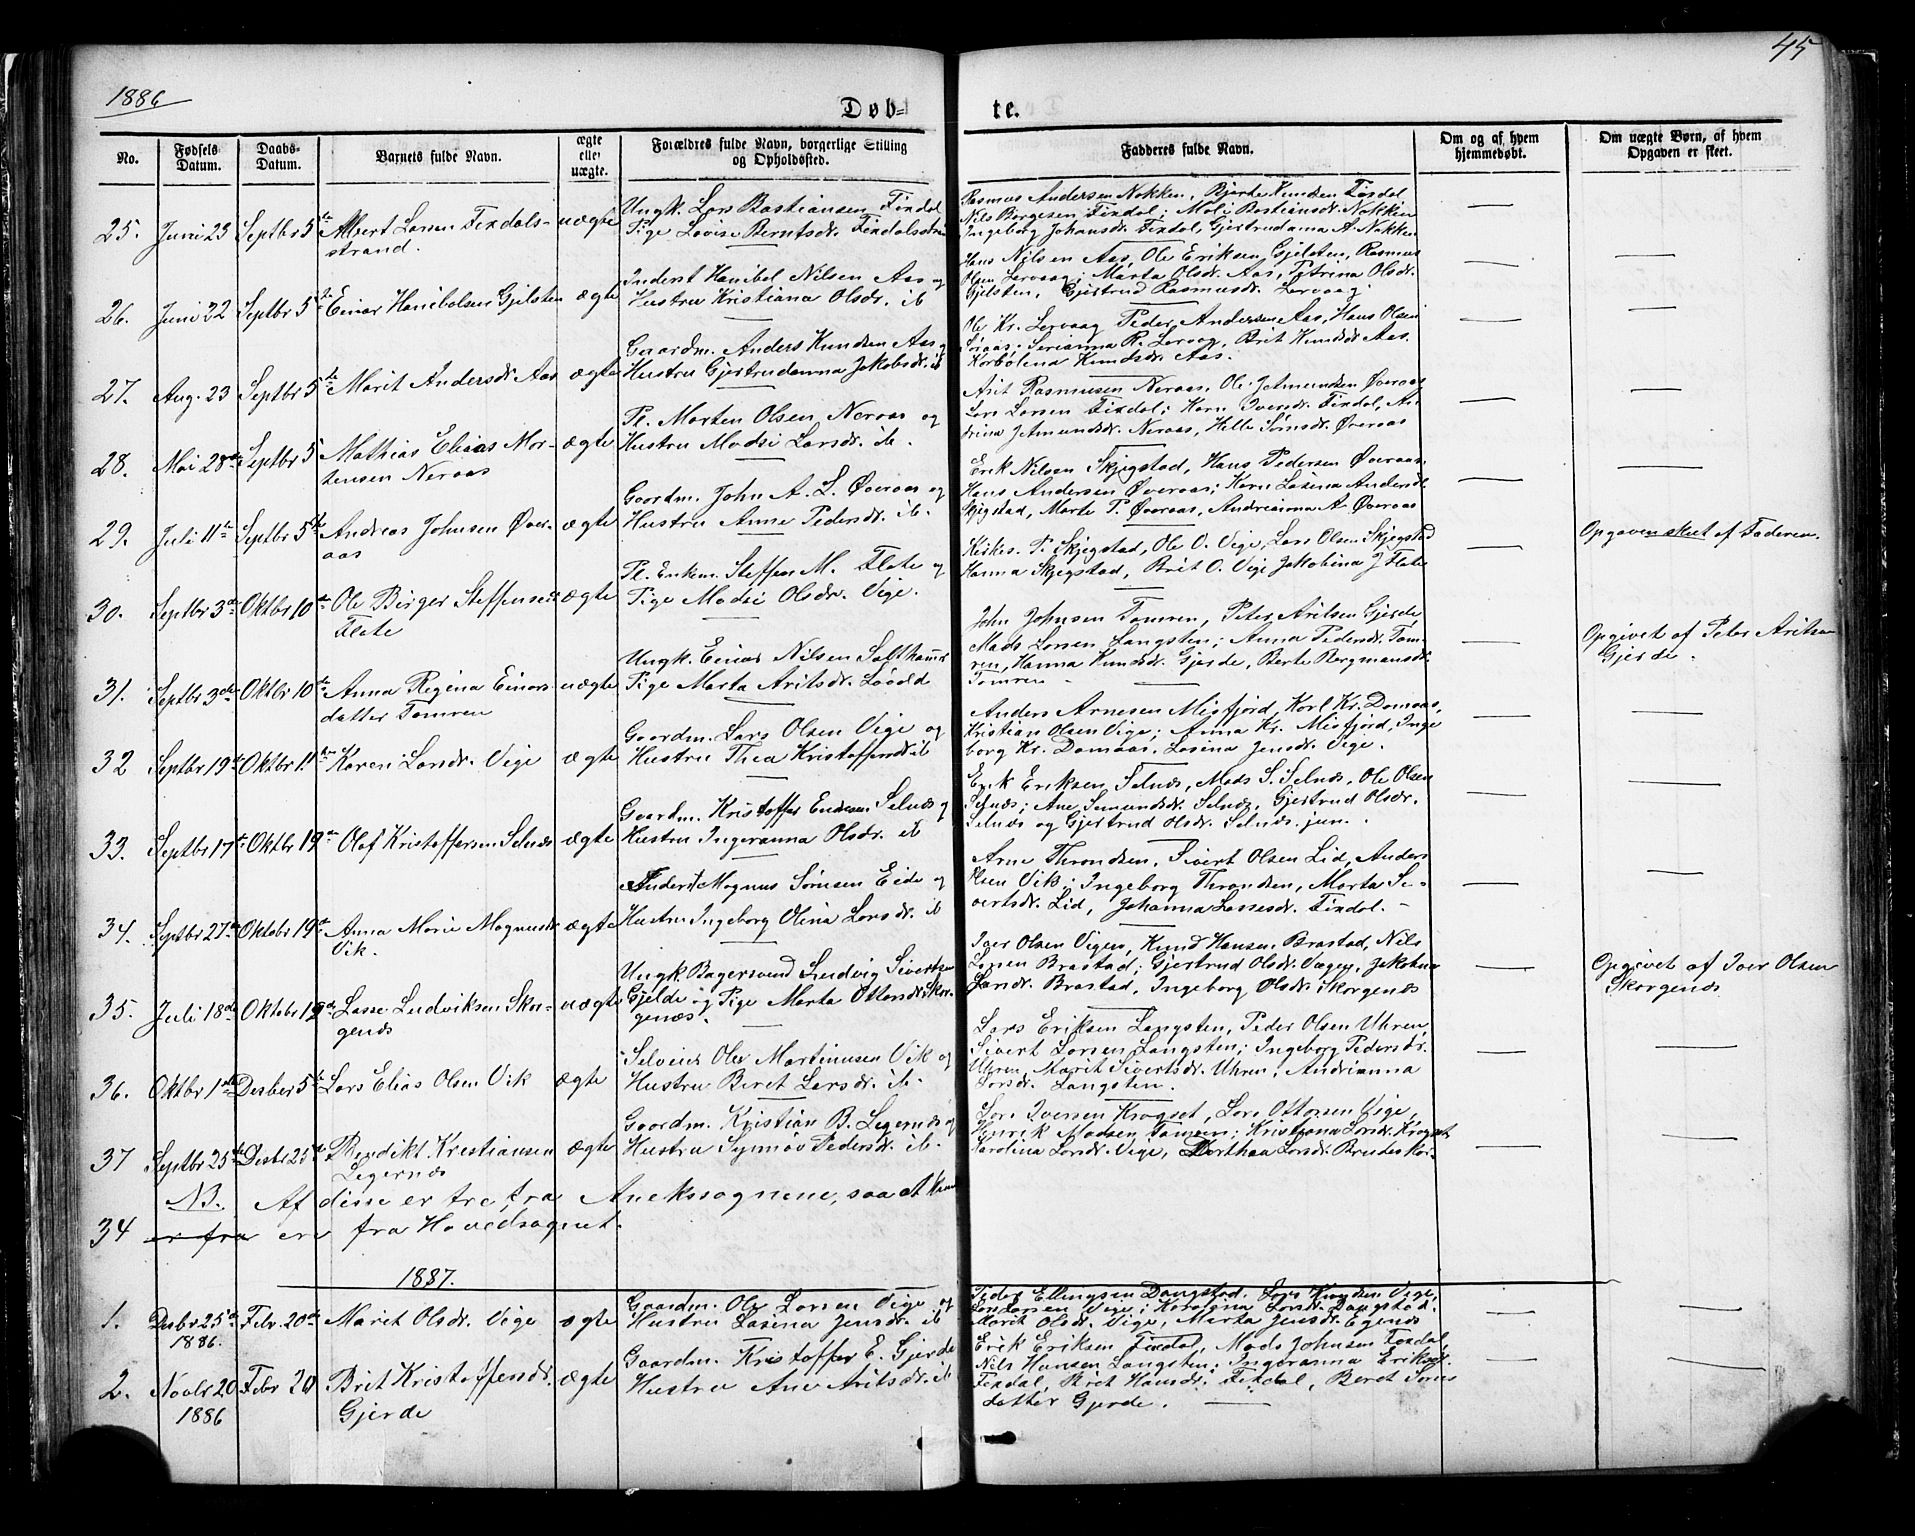 1886
45
Døb-
te.
No.
Fødsels Datum.
Daabs-Datum.
Barnets fulde Navn.
ægte eller uægte.
Forældres fulde Navn, borgerlige Stilling og Opholdssted.
Fadderes fulde Navn.
Om og af hvem hjemmedøbt.
Om uægte Børn, af hvem Opgaven er skeet.
25. Juni 23 Septbr 5te Albert Larsen Fixdals-
strand. uægte
Ungk. Lars Bastiansen Fixdal
Pige Lovise Berntsdr. Fixdalsstrand
Rasmus Andersen Nakken, Bjarte Knudsen Fixdal,
Nils Børgesen Fixdal; Mali Bastiansdr. Nakken
Ingeborg Johansdr. Fixdal, Gjertrudanna A. Nakken
26. Juni 22 Septbr 5te Einar Hanibalsen Gjelsten ægte
Inderst Hanibal Nilsen Aas og
Hustru Kristiana Olsdr. ib
Hans Nilsen Aas, Ole Eriksen Gjelsten, Rasmus
Olsen Lervaag; Marta Olsdr. Aas, Petrina Olsdr.
Gjelsten, Gjertrud Rasmusdr. Lervaag.
27. Aug. 23 Septbr 5te Marit Andersdr. Aas ægte
Gaardm. Anders Knudsen Aas og
Hustru Gjertrudanna Jakobsdr. ib
Ole Kr. Lervaag, Peder Andersen Aas, Hans Olsen
Soraas; Serianna R. Lervaag, Brit Knudsdr. Aas,
Karbølena Knudsdr. Aas.
28. Mai 28de Septbr 5 Mathias Elias Mor-
tensen Neraas ægte
Pl. Morten Olsen Neraas og
Hustru Madsi Larsdr. ib.
Arit Rasmusen Neraas, Ole Jetmundsen Øveraas
Lars Larsen Fixdal; Karn Iversdr. Fixdal, An-
drina Jetmundsdr. Neraas, Helle Simsdr. Øveraas
29. Juli 11te Septbr 5te Andreas Johnsen Øver-
aas ægte
Gaardm. John A. L. Øveraas og
Hustru Anne Pedersdr. ib.
Erik Nilsen Skjegstad, Hans Pedersen Øveraas,
Hans Andersen Øveraas; Karn Lasena Andersdr.
Skjegstad, Marte P. Øveraas, Andrianna A. Øveraas
30. Septbr 3de Oktbr 10te Ole Birger Steffensen
Flate ægte
Pl. Enkem. Steffen M. Flate og
Pige Madsi Olsdr. Vige.
Kirkes. P. Skjegstad, Ole O. Vige, Lars Olsen Skjegstad
Hanna Skjegstad, Brit O. Vige, Jakobina J. Flate
Opgaven skeet af Faderen.
31. Septbr 3de Oktbr 10te Anna Regina Einars-
datter Tomren uægte
Ungk. Einar Nilsen Salthammer
Pige Marta Aritsdr.
John Johnsen Tomren, Peter Aritsen Gjerde,
Mads Larsen Langsten; Anna Pedersdr. Tom-
ren, Hanna Knudsdr. Gjerde, Berte Bergmansdr.
Tomren
Opgivet af Peter Aritsen
Gjerde.
32 Septbr 19de Oktbr 11te Karen Larsdr. Vige ægte
Gaardm. Lars Olsen Vige og
Hustru Thea Kristoffersdr. ib
Anders Arnesen Misfjord, Karl Kr. Domaas,
Kristian Olsen Vige; Anna Kr. Misfjord, Inge
borg Kr. Domaas, Lasina Jensdr. Vige.
33. Septbr 17de Oktbr 19de Olaf Kristoffersen Selnæs ægte
Gaardm. Kristoffer Endresen Selnæs og
Hustru Ingeranna Olsdr. ib
Erik Eriksen Selnæs, Mads S. Selnæs, Ole Olsen
Selnæs; Ane Simundsdr. Selnæs, Gjertrud Olsdr.
Selnæs og Gjertrud Olsdr. Selnæs jun.
34. Septbr 27de Oktobr 19de Anna Marie Magnusdr.
Vik. ægte
Inderst Magnus Sørnsen Eide og
Hustru Ingeborg Olina Larsdr. ib
Arne Throndsen, Sivert Olsen Lid, Anders
Olsen Vik; Ingeborg Throndsen, Marta Si-
vertsdr. Lid, Johanna Lassesdr. Fixdal.
35. Juli 18de Oktobr 19de Lasse Ludviksen Skor-
genæs uægte
Ungk. Bagersvend Ludvig Sivertsen
Gjelde og Pige Marta Ottarsdr. Skor-
genæs.
Iver Olsen Vigen, Knud Hansen Brastad, Nils
Larsen Brastad; Gjertrud Olsdr. Vagen, Jakobina
Larsdr. Brastad, Ingeborg Olsdr. Skorgenæs
Opgivet af Iver Olsen
Skorgenæs
36. Oktbr 1ste Desber 5te Lars Elias Olsen Vik ægte
Selveier Ole Martinusen Vik og
Hustru Beret Larsdr. ib.
Lars Eriksen Langsten, Peder Olsen Uhren,
Sivert Larsen Langsten; Ingeborg Pedersdr.
Uhren, Marit Sivertsdr. Uhren, Andrianna
Larsdr. Langsten.
37 Septbr 25de Desbr 25de Bendikt Krestiansen
Legernæs ægte
Gaardm. Kristian B. Legernæs og
Hustru Synnøv Pedersdr. ib.
Lars Iversen Krogset, Lars Ottarsen Vige,
Henrik Madsen Tomren; Kristiana Larsdr. Krogset
Karolina Larsdr. Vige, Dorthea Larsdr. Brudeskor.
NB. Af disse er tre fra Anekssognene, saa at kun
34 er fra er fra Hovedsognet.
1887.
1. Desbr 25de Febr. 20de Marit Olsdr. Vige ægte
1886.
Gaardm. Ole Larsen Vige og
Hustru Lasina Jensdr. ib
Peder Ellingsen Dangstad, Lars Knudsen Vige,
Jon Larsen Vige; Karolina Larsdr. Dangstad.
Marit Olsdr. Vige, Marta Jensdr. Egenæs
2. Novbr 20 Febr 20 Brit Kristoffersdr.
1886 Gjerde ægte
Gaardm. Kristoffer E. Gjerde
Hustru Ane Aritsdr. ib
Erik Eriksen Fixdal, Mads Johnsen Fixdal,
Nils Hansen Langsten; Ingeranna Eriksdr.
Fixdal, Beret Hansdr. Fixdal, Beret Sørns
datter Gjerde.